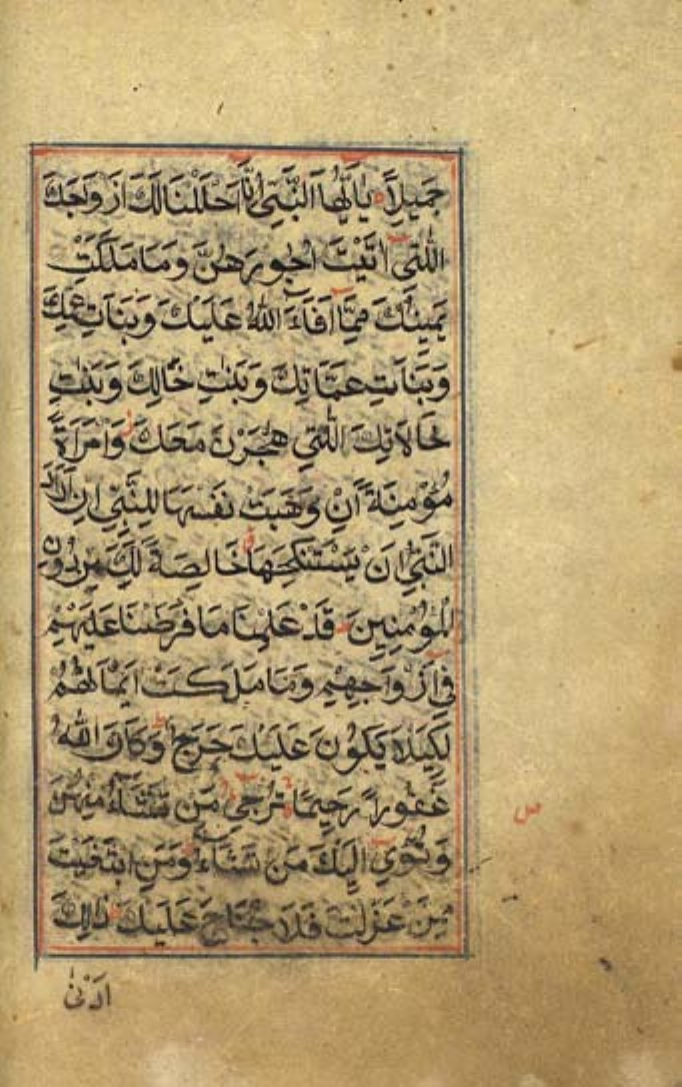 جَمِيلًا يَا أَيُّهَا النَّبِيُّ إِنَّا أَحْلَلْنَا لَكَ أَزْوَاجَكَ
اللّٰتِي اٰتَيْتَ اُجُورَهُنَّ وَمَا مَلَكَتْ
يَمِينُكَ مِمَّا اَفَاءَ اللّٰهُ عَلَيْكَ وَبَنَاتِ عَمِّكَ
وَبَنَاتِ عَمَّاتِكَ وَبَنٰتِ خَالِكَ وَبَنٰتِ
خَالَاتِكَ اللّٰتِي هٰجَرْنَ مَعَكَ وَامْرَاَةً
مُؤْمِنَةً اَنْ وَهَبَتْ نَفْسَهَا لِلنَّبِيِّ اِنْ اَرَادَ
النَّبِيُّ اَنْ يَسْتَنْكِحَهَا خَالِصَةً لَكَ مِنْ دُونِ
الْمُؤْمِنِينَ قَدْ عَلِمْنَا مَا فَرَضْنَا عَلَيْهِمْ
فِي اَزْوَاجِهِمْ وَمَا مَلَكَتْ اَيْمَانُهُمْ
لِكَيْلَا يَكُونَ عَلَيْكَ حَرَجٌ وَكَانَ اللّٰهُ
غَفُورًا رَحِيمًا تُرْجِي مَنْ تَشَاءُ مِنْهُنَّ
وَتُـْٔوِي اِلَيْكَ مَنْ تَشَاءُ وَمَنِ ابْتَغَيْتَ
مِمَّنْ عَزَلْتَ فَلَا جُنَاحَ عَلَيْكَ ذٰلِكَ
اَدْنٰى